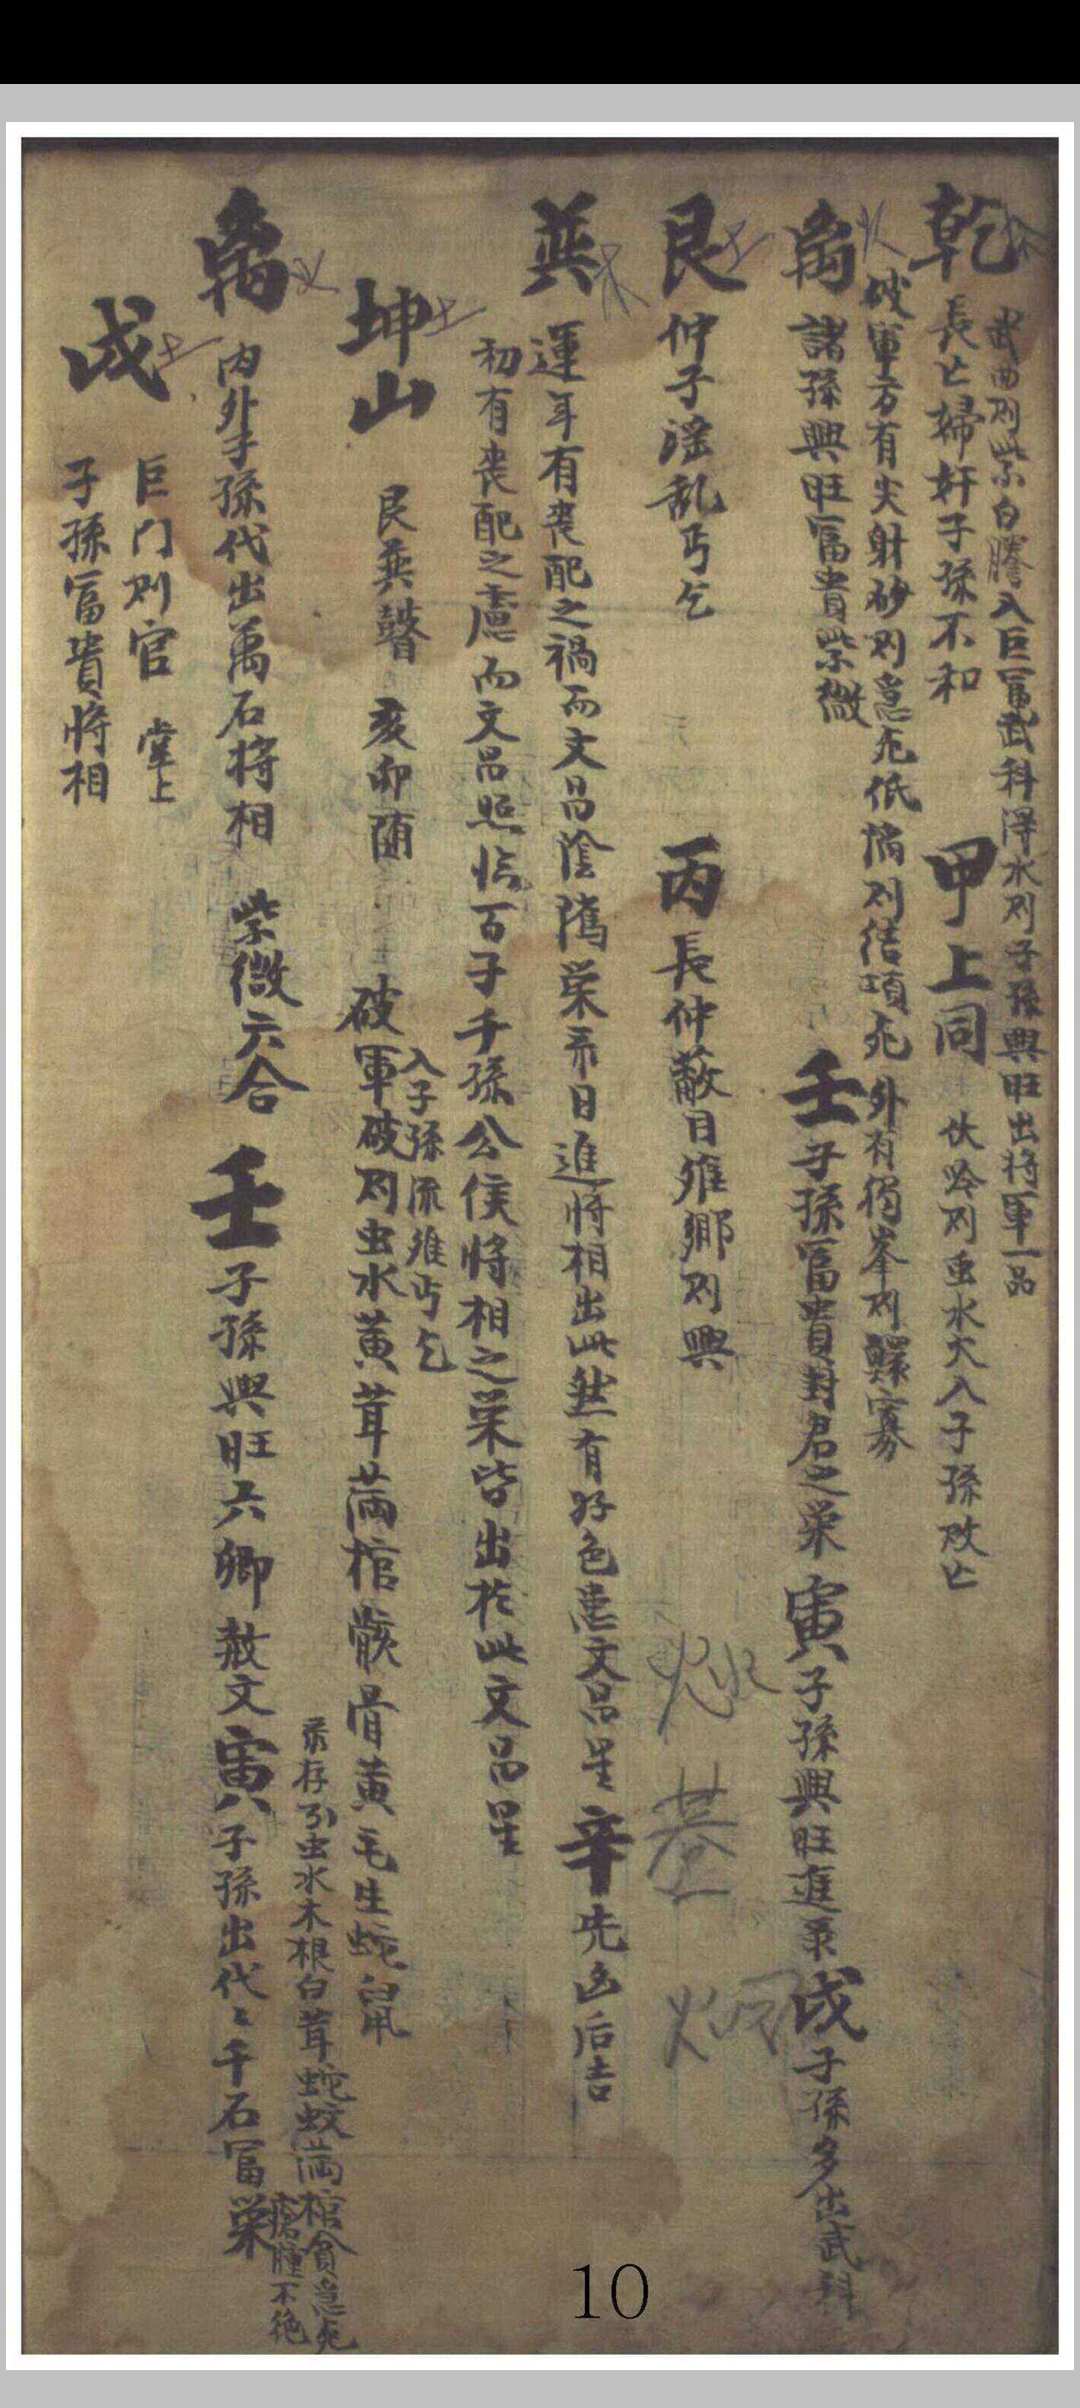 乾
武曲則紫白騰入巨冨武科得水則子孫興旺出將軍一品
長亡婦奸子孫不和 甲上同 伏吟則虫水穴入子孫敗亡
火
破軍方有尖射砂則急死低陷則結項死外有獨峯則鰥寡
离 諸孫興旺冨貴紫微 壬子孫冨貴封君之栄 寅子孫興旺進彔 戌子孫多出武科
艮 土 仲子淫乱丐乞 丙 長仲蔽目離鄉則興
巽 木 運年有喪配之禍而文昌陰隲栄承日進將相出此然有好色患文昌星 辛 先凶后吉
初有喪配之慮而文昌照臨百子千孫公侯將相之栄皆出於此文昌星
坤山 土 艮巽聲 亥卯随 破軍破則虫水黃茸滿棺骸骨黃毛生蛇鼠
入子孫流離丐乞
彔存引虫水木根白茸蛇蚊滿棺貧急死
瘡腫不絶
离 火 内外子孫代出萬石將相 紫微六合 壬子孫興旺六卿 散文 寅子孫出代々千石冨栄
戌 土
巨门則官 掌上
子孫冨貴將相
10